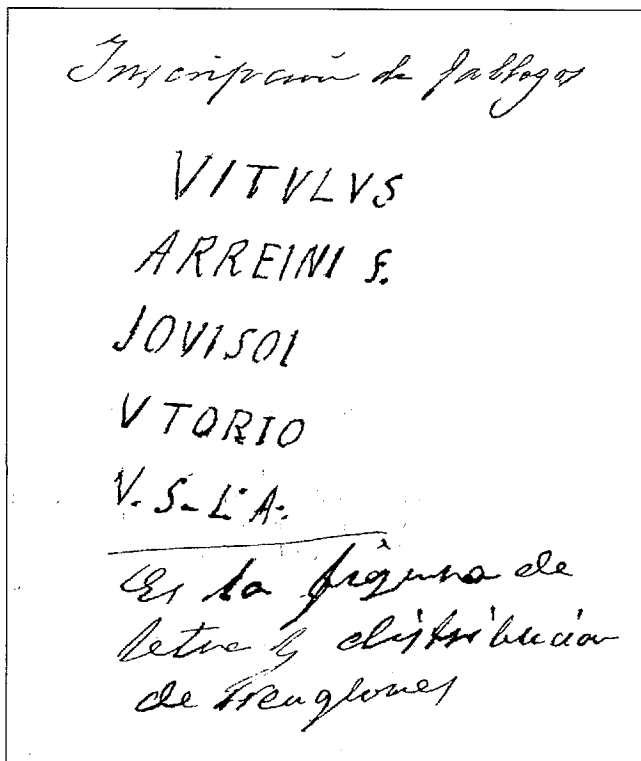 Inscripción de Gallegos
VITVLVS
ARREINI S.
JOVISOL
VTORIO
V. S. L. A.
Es la figura de
letra y distribución
de renglones